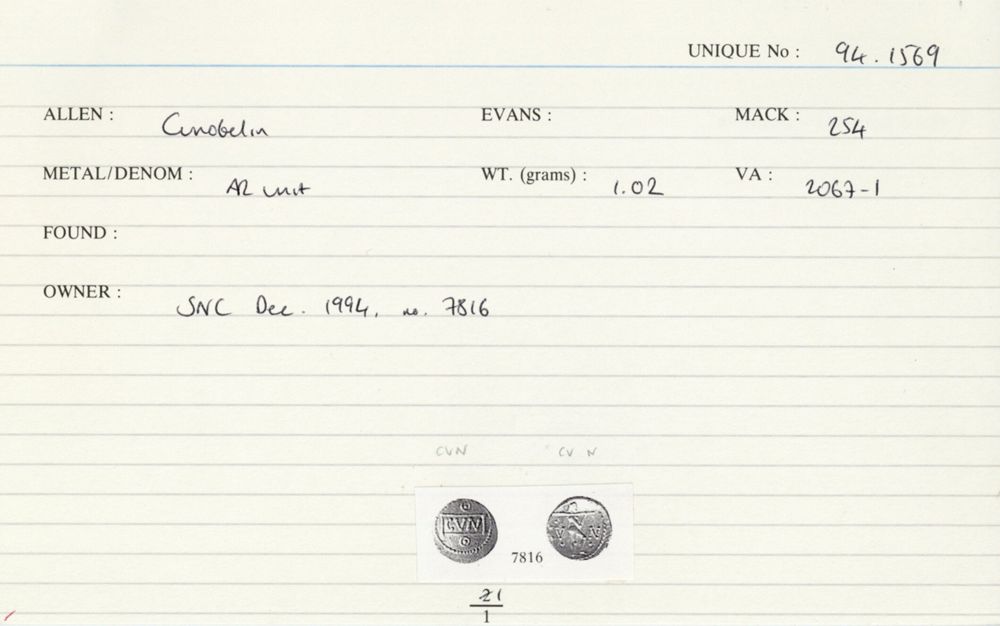 UNIQUE No : 94.1569
ALLEN : Cunobelin EVANS : MACK : 254
METAL/DENOM : AR unit WT. (grams) : 1.02 VA : 2067-1
FOUND :
OWNER : SNC Dec. 1994, no. 7816
CVN CV N
CVN V N
7816
21
1